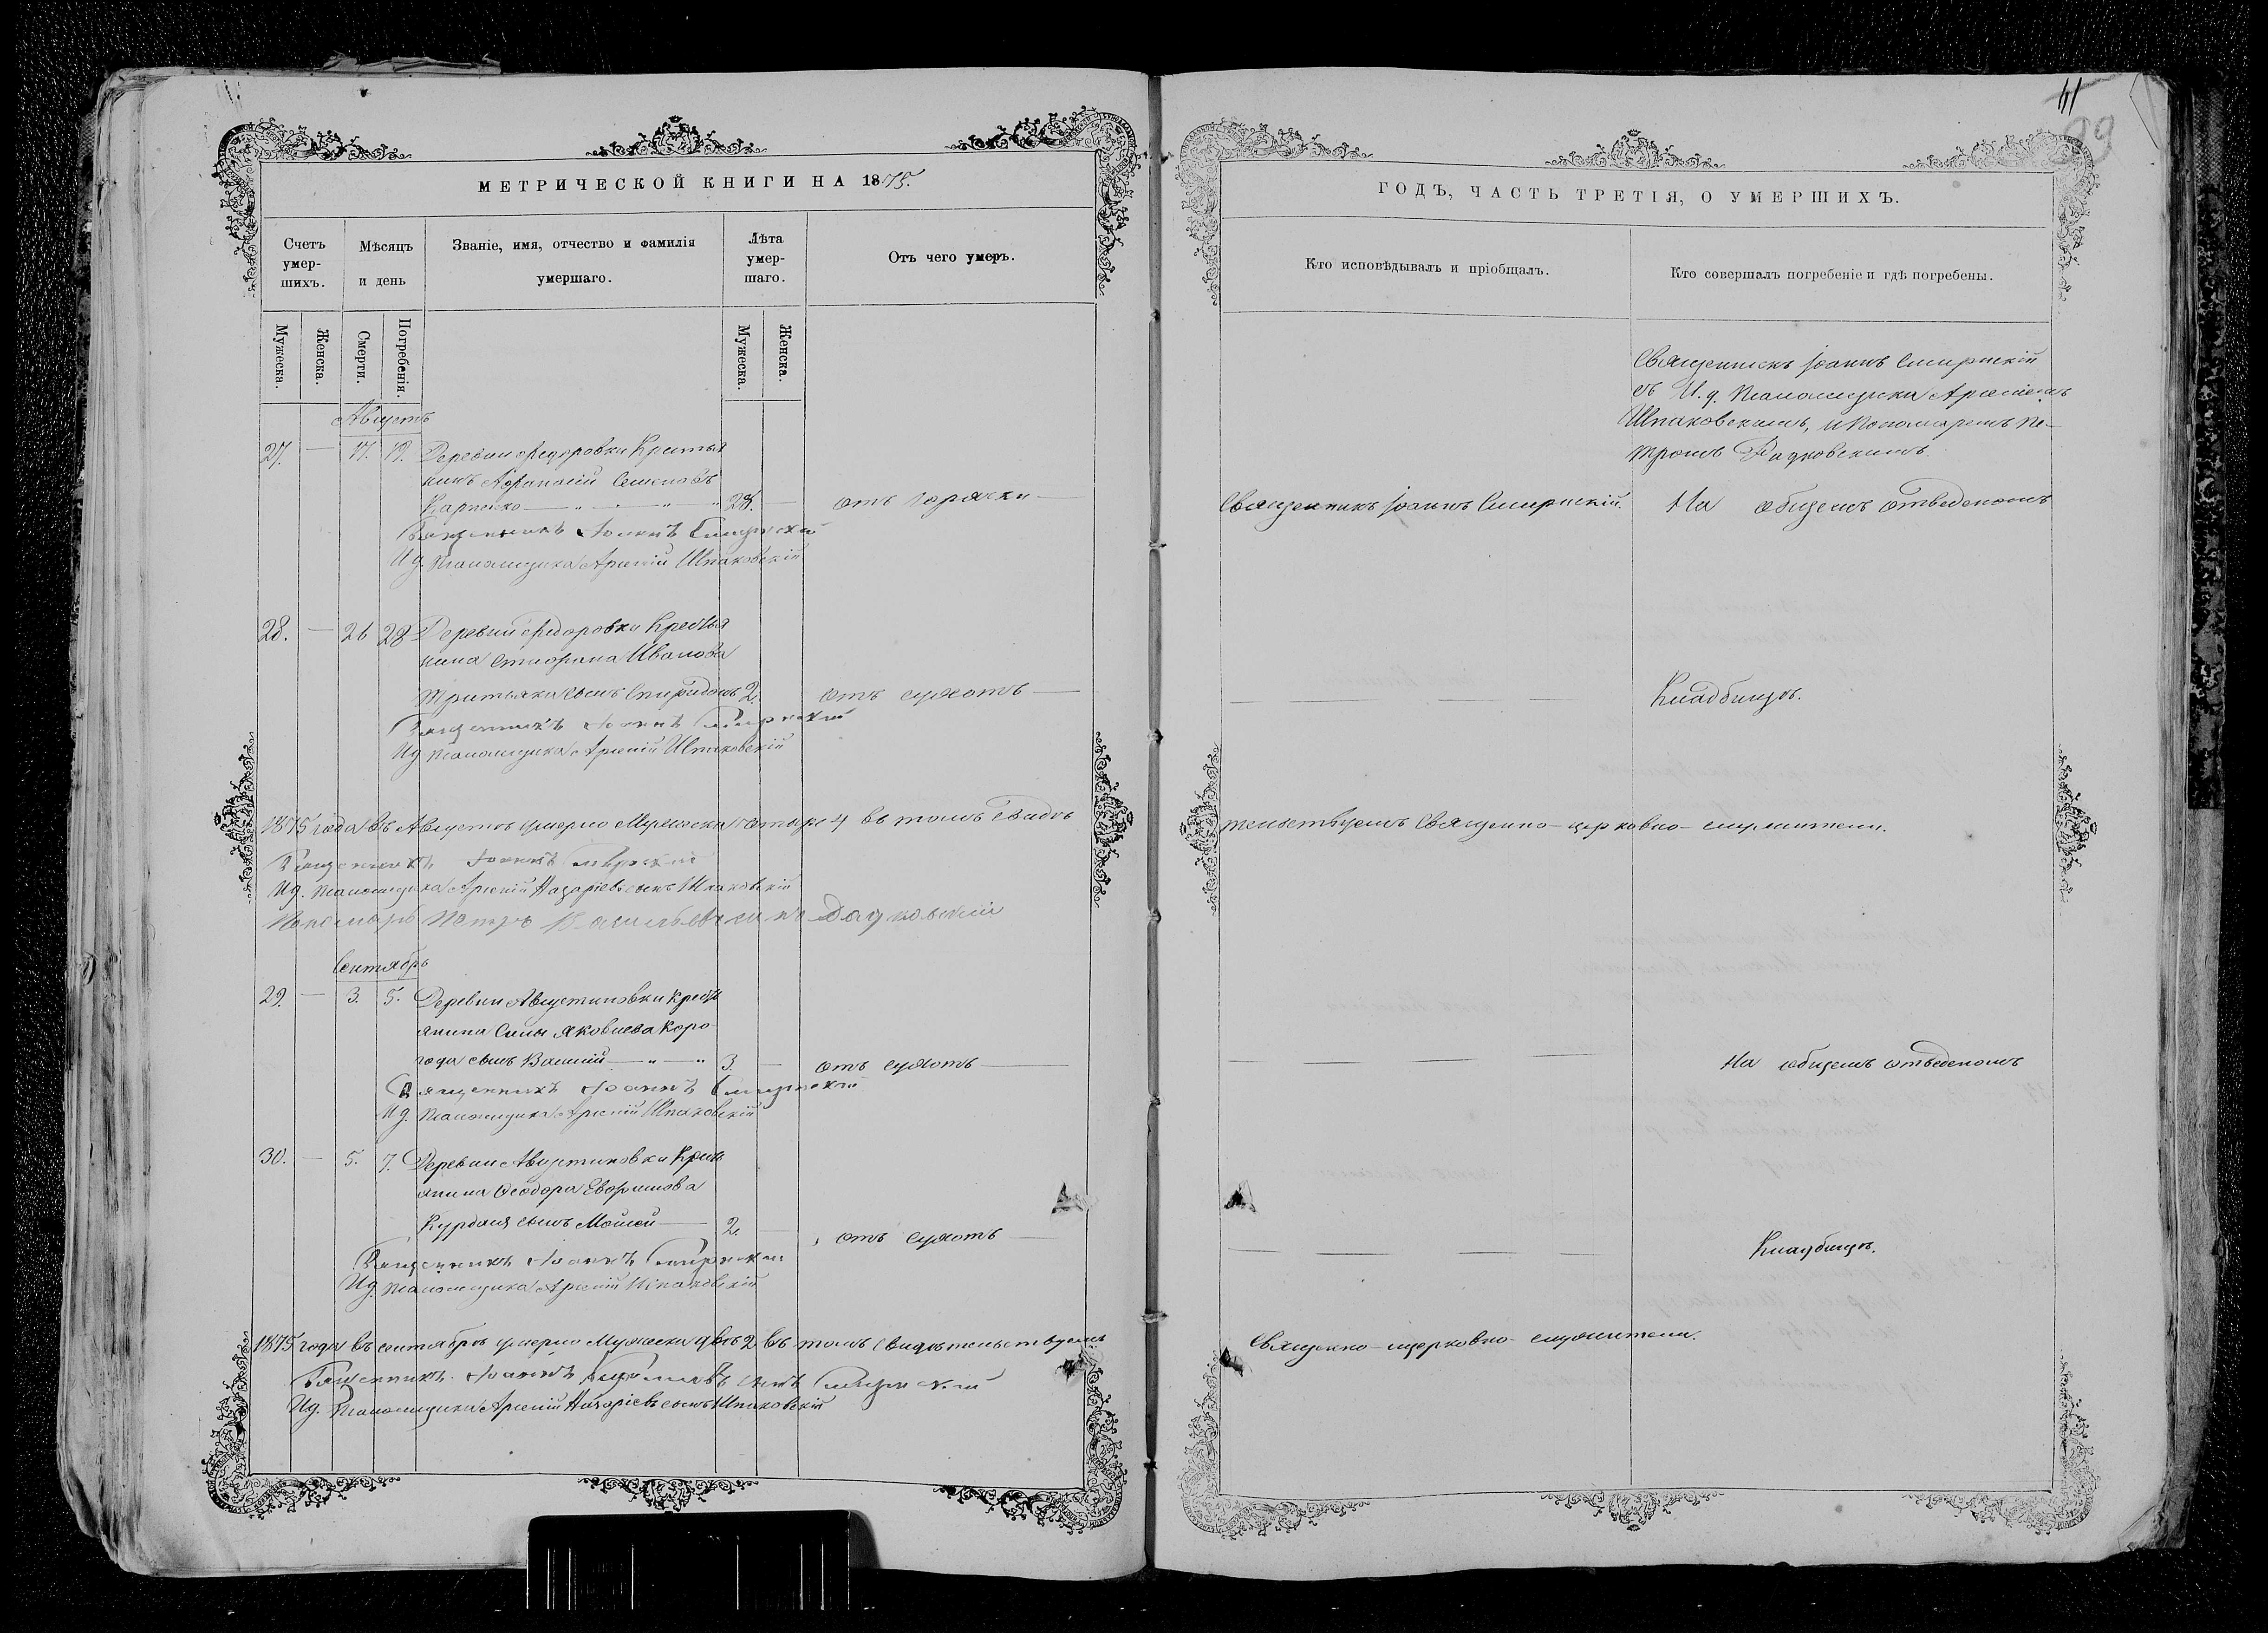 МЕТРИЧЕСКОЙ КНИГИ НА 1875.
Счетъ умер-шихъ.
Мѣсяцъ и день
Званіе, имя, отчество и фамилія умершаго.
Лѣта умер-шаго.
Отъ чего умеръ.
Мужеска.
Женска.
Смерти.
Погребенія.
Мужеска.
Женска.
Августъ
27. — 17. 19. Деревни Федоровки Крестья
нинъ Семеновъ
Карпенко 28. — отъ горячки
Священникъ Іоаннъ Смирнскій
Ид. Псаломщика Арсеній Шпаковскій
28. — 26 28 Деревни Федоровки Крестья
нина Ивалова
сынъ Спиридонъ 2. отъ сухотъ
Священникъ Іоаннъ Смирнскій
Ид Псаломщика Арсеній Шпаковскій
1875 года въ Августѣ умерло Мужеска четыре 4 въ томъ Свидѣ
Священникъ Іоаннъ Смирнскій
Ид. Псаломщика Арсеній Назаріевъ сынъ Шпаковскій
Пономарь Петръ
Сентябрь
29. — 3. 5. Деревни Августиновки Кресть
янина Силы Яковлева Коро
года сынъ Василій 3. — отъ сухотъ
Священникъ Іоаннъ Смирнскій
Ид. Псаломщика Арсеній Шпаковскій
30. — 5. 7. Деревни Августиновки Крест
янина Ѳеодора Евфимова
сынъ Моисей 2. — отъ сухотъ
Священникъ Іоаннъ Смирнскій
Ид. Псаломщика Арсеній Шпаковскій
1875 года въ сентябрѣ умерло Мужеска два 2 въ томъ свидѣтельствуемъ
Священникъ Іоаннъ сынъ Смирнскій
Ид. Псаломщика Арсеній Назаріевъ сынъ Шпаковскій
ГОДЪ, ЧАСТЬ ТРЕТІЯ, О УМЕРШИХЪ.
Кто исповѣдывалъ и пріобщалъ.
Кто совершалъ погребеніе и гдѣ погребены.
Священникъ Іоаннъ Смирнскій
съ И. д. Псаломщика Арсеніемъ
Шпаковскимъ, и Пономаремъ Пе-
тромъ
Священникъ Іоаннъ Смирнскій. На общемъ отведеномъ
Кладбищѣ.
тельствуемъ Священно-церковно-служители.
На общемъ отведеномъ
Кладбищѣ.
Священно-церковно-служители.